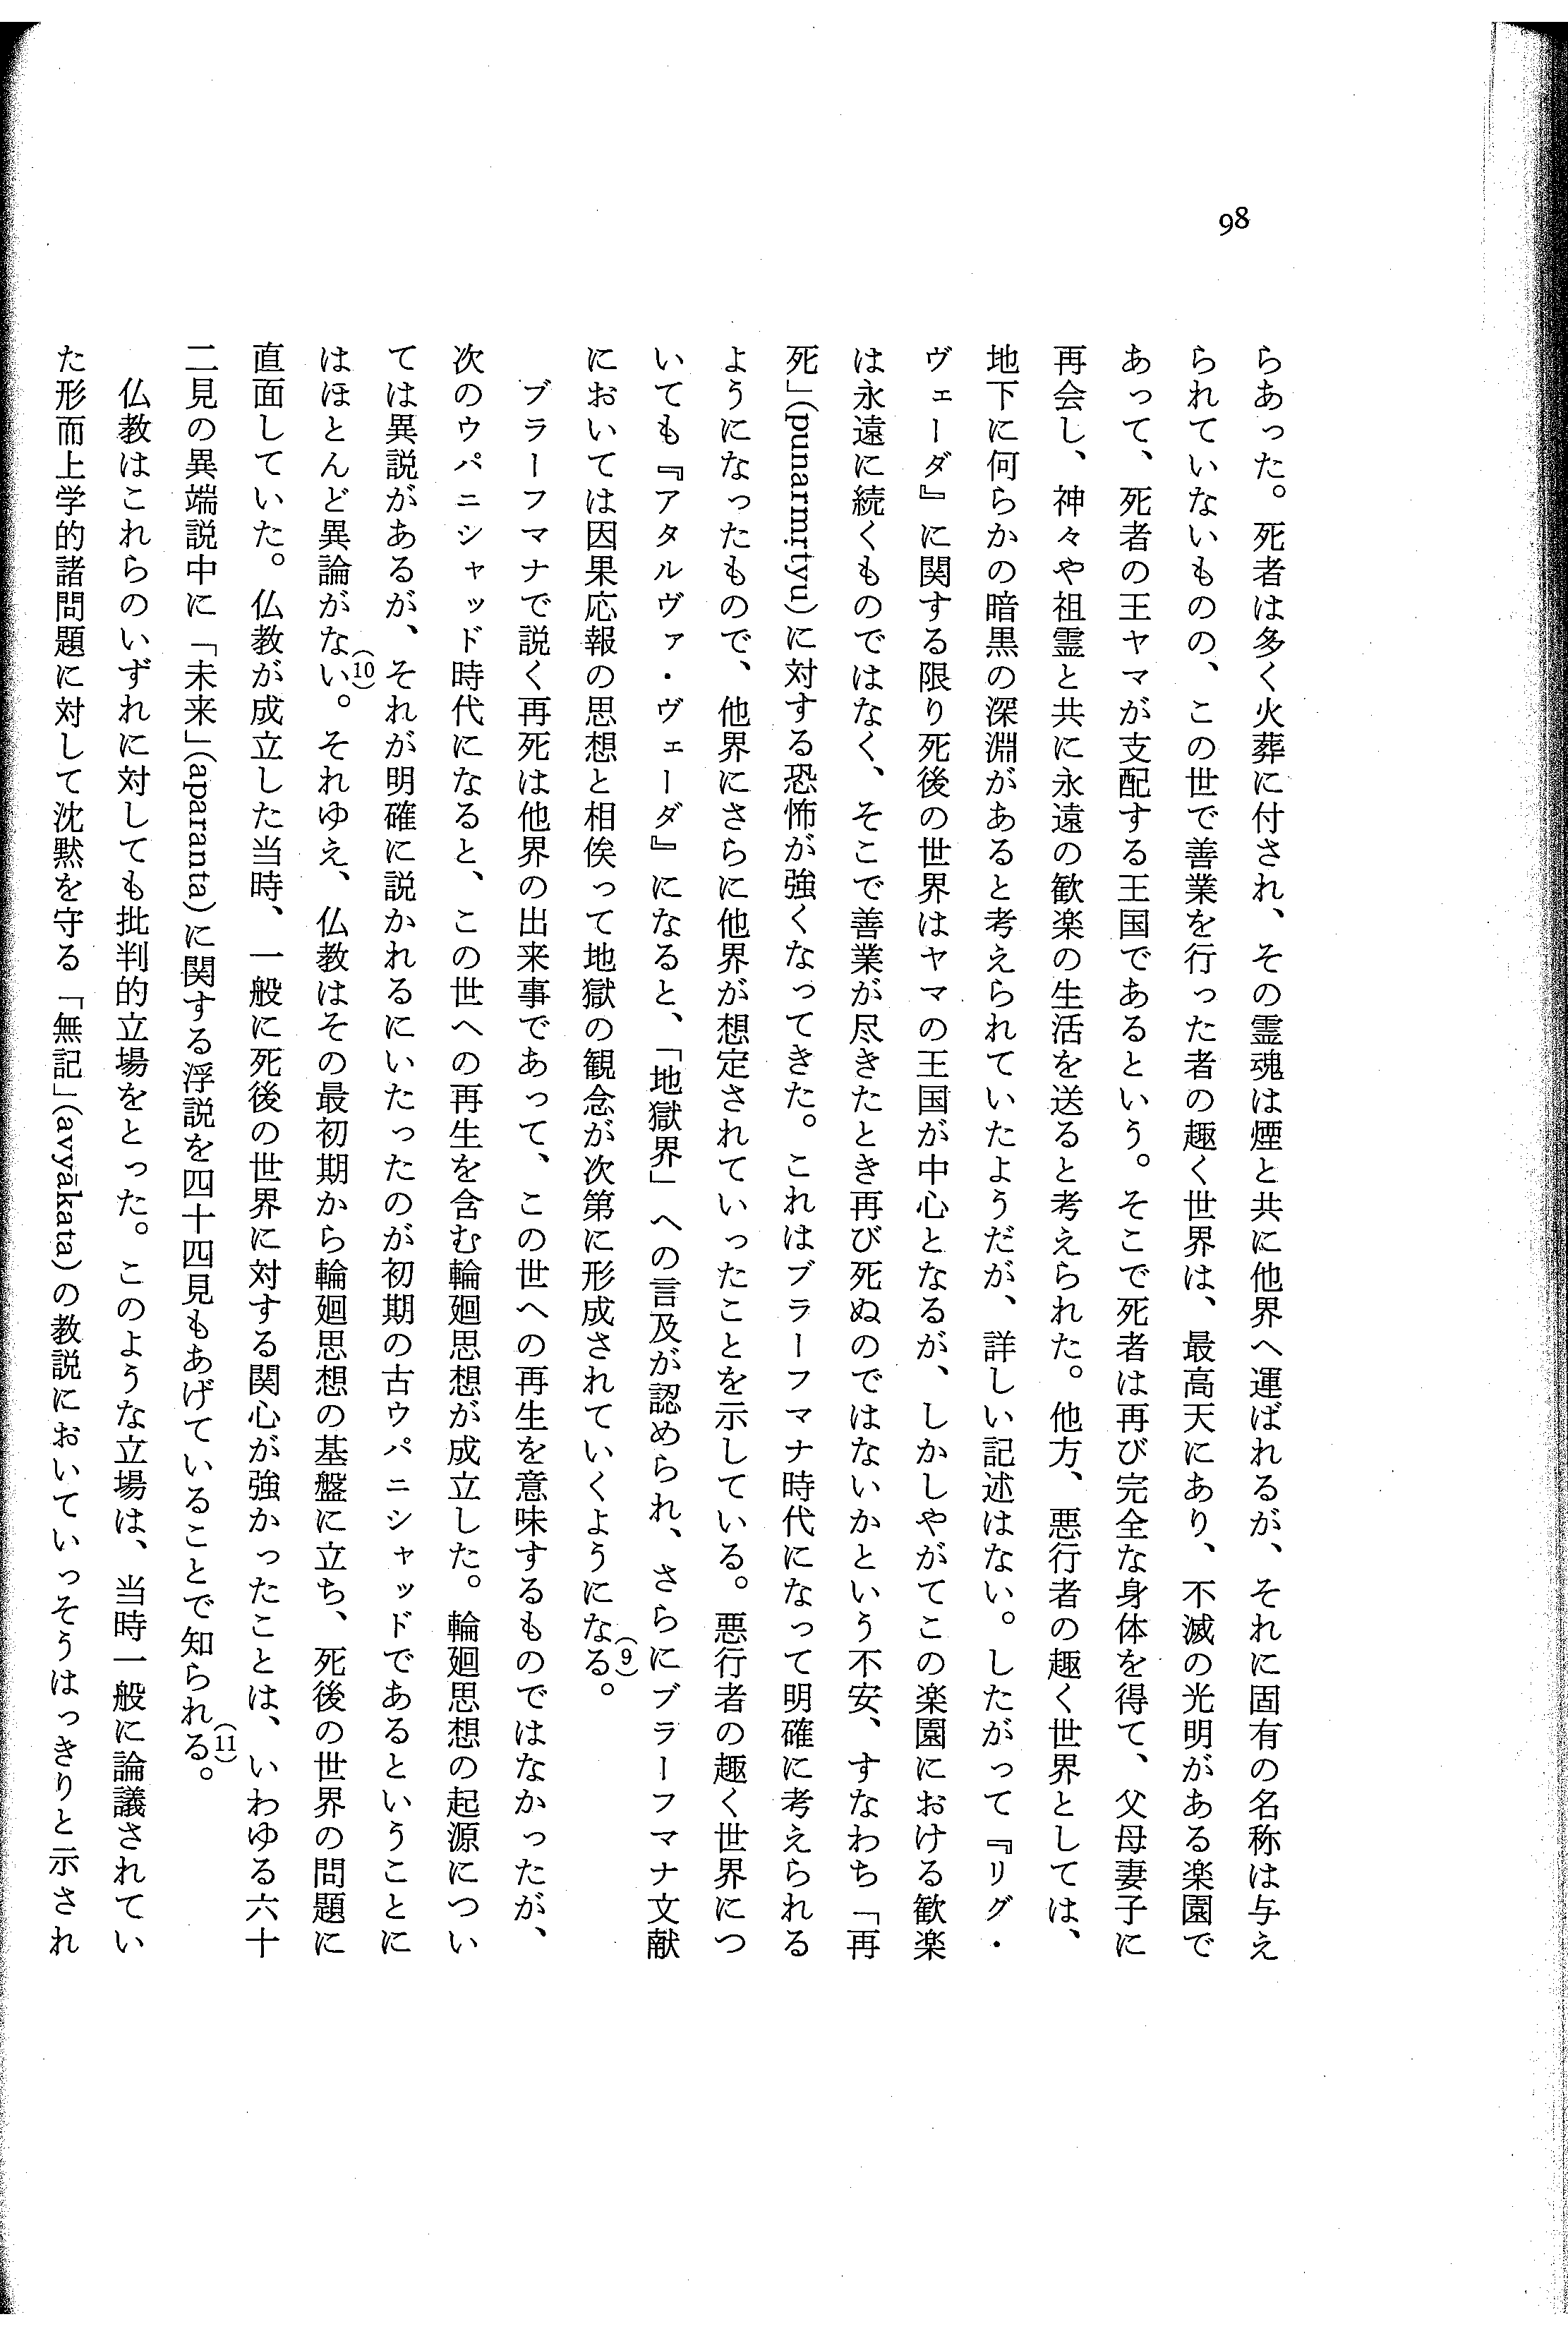 98
らあった。死者は多く火葬に付され、その霊魂は煙と共に他界へ運ばれるが、それに固有の名称は与え
られていないものの、この世で善業を行った者の趣く世界は、最高天にあり、不滅の光明がある楽園で
あって、死者の王ヤマが支配する王国であるという。そこで死者は再び完全な身体を得て、父母妻子に
再会し、神々や祖霊と共に永遠の歓楽の生活を送ると考えられた。他方、悪行者の趣く世界としては、
地下に何らかの暗黒の深淵があると考えられていたようだが、詳しい記述はない。したがって『リグ・
ヴェーダ』に関する限り死後の世界はヤマの王国が中心となるが、しかしやがてこの楽園における歓楽
は永遠に続くものではなく、そこで善業が尽きたとき再び死ぬのではないかという不安、すなわち「再
死」(punarmṛtyu)に対する恐怖が強くなってきた。これはブラーフマナ時代になって明確に考えられる
ようになったもので、他界にさらに他界が想定されていったことを示している。悪行者の趣く世界につ
いても『アタルヴァ・ヴェーダ』になると、「地獄界」への言及が認められ、さらにブラーフマナ文献
においては因果応報の思想と相俟って地獄の観念が次第に形成されていくようになる(9)。
ブラーフマナで説く再死は他界の出来事であって、この世への再生を意味するものではなかったが、
次のウパニシャッド時代になると、この世への再生を含む輪廻思想が成立した。輪廻思想の起源につい
ては異説があるが、それが明確に説かれるにいたったのが初期の古ウパニシャッドであるということに
はほとんど異論がない(10)。それゆえ、仏教はその最初期から輪廻思想の基盤に立ち、死後の世界の問題に
直面していた。仏教が成立した当時、一般に死後の世界に対する関心が強かったことは、いわゆる六十
二見の異端説中に「未来」(aparanta)に関する浮説を四十四見もあげていることで知られる(11)。
仏教はこれらのいずれに対しても批判的立場をとった。このような立場は、当時一般に論議されてい
た形而上学的諸問題に対して沈黙を守る「無記」(avyākata)の教説においていっそうはっきりと示され